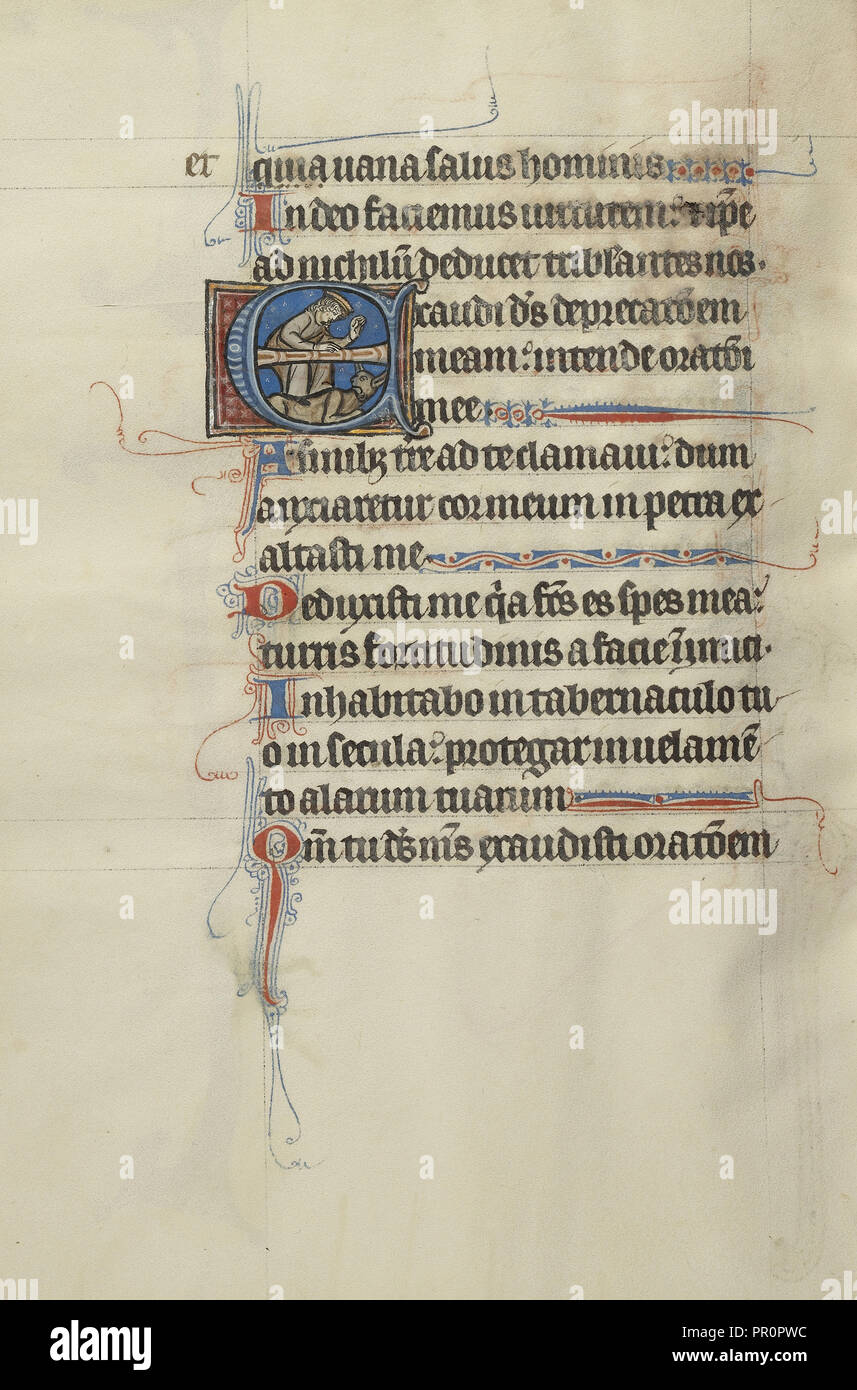 et
quia uana salus hominis
In deo faciemus uirtutem: ⁊ ip̄e
ad nichilū deducet tribl'antes nos.
Exaudi dīs deprecatōem
meam: intende oratōi
mee
A finibꝫ tr̄e ad te clamaui: dum
anxiaretur cor meum in petra ex
altasti me.
Deduxisti me q̄a fc̄s es spes mea:
turris fortitudinis a facie īnimici.
Inhabitabo in tabernaculo tu
o in secula: protegar in uelamē
to alarum tuarum
Qm̄ tu dīs m̄s exaudisti oratōem
a alamy stock photo
alamy
Image ID: PR0PWC
www.alamy.com